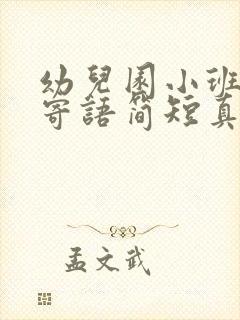 幼兒園小班
寄語简短真
孟文武